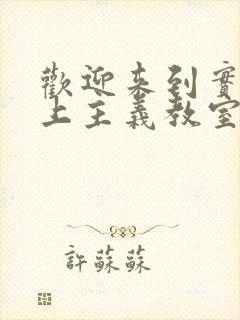 歡迎來到實
上主義教室
許蘇蘇